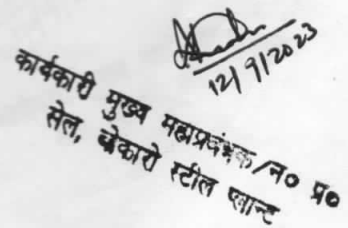 12/9/2023
कार्यकारी मुख्य महाप्रबंधक/न० प्र०
सेल, बोकारो स्टील प्लान्ट